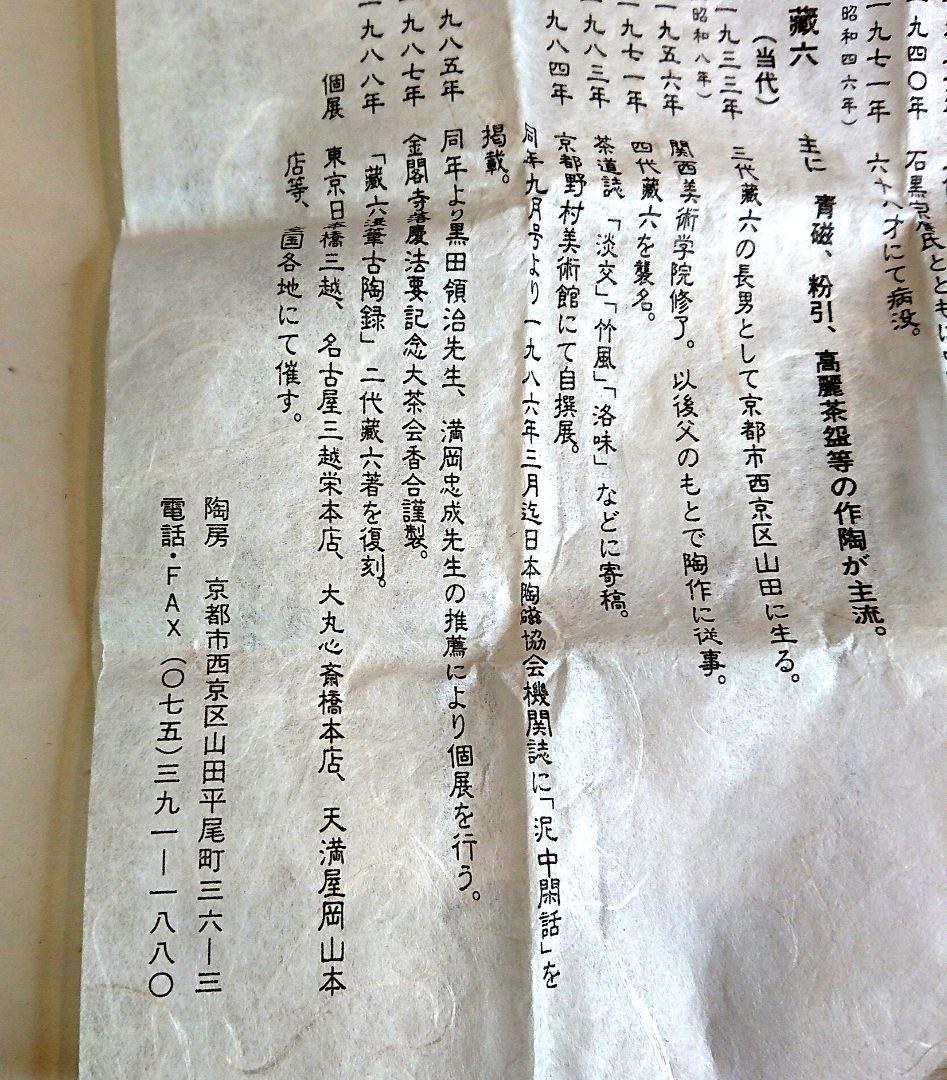 九四〇年 石黒宗麿氏とともに
一九七一年 六十八才にて病没。
(昭和四六年)
主に 青磁、粉引、高麗茶盌等の作陶が主流。
藏六
(当代)
一九三三年 三代藏六の長男として京都市西京区山田に生る。
(昭和八年)
一九五六年 関西美術学院修了。以後父のもとで陶作に従事。
一九七一年 四代藏六を襲名。
一九八三年 茶道誌「淡交」「竹風」「洛味」などに寄稿。
一九八四年 京都野村美術館にて自撰展。
同年九月号より一九八六年三月迄日本陶磁協会機関誌に「泥中閑話」を
掲載。
九八五年 同年より黒田領治先生、満岡忠成先生の推薦により個展を行う。
一九八七年 金閣寺落慶法要記念大茶会香合謹製。
一九八八年 「藏六漫筆古陶録」二代藏六著を復刻。
個展 東京日本橋三越、名古屋三越栄本店、大丸心斎橋本店、天満屋岡山本
店等、全国各地にて催す。
陶房 京都市西京区山田平尾町三六―三
電話・FAX(〇七五)三九一―一八八〇